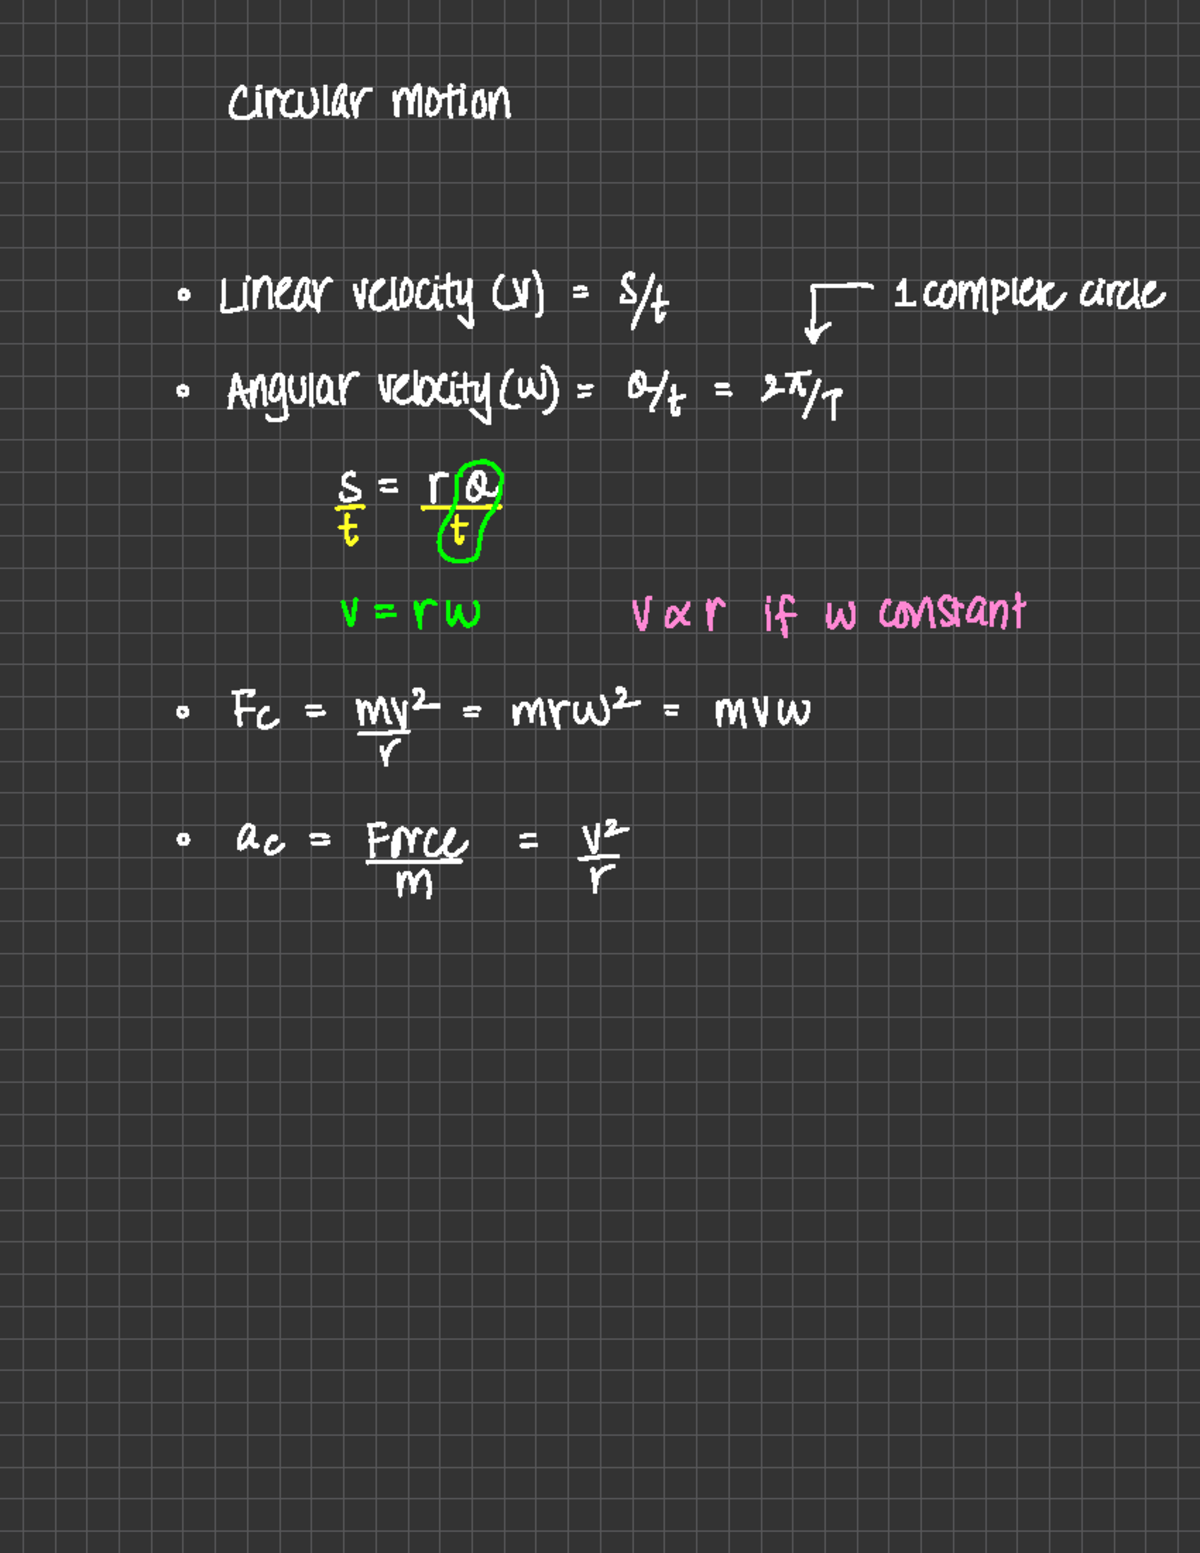 Circular motion
• Linear velocity (v) = s/t
1 complete circle
• Angular velocity (w) = θ/t = 2π/T
s/t = rθ/t
v = rw
v ∝ r if w constant
• Fc = mv²/r = mrw² = mvw
• ac = Force/m = v²/r